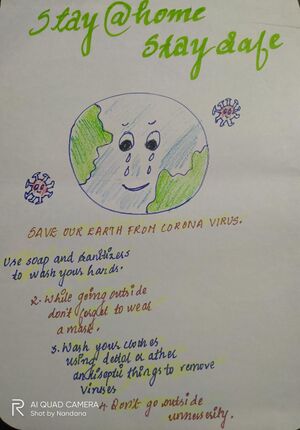 Stay@home
Stay safe
SAVE OUR EARTH FROM CORONA VIRUS.
Use soap and sanitizers
to wash your hands.
2. While going outside
don't forget to wear
a mask.
3. Wash your clothes
using detol or other
antiseptic things to remove
viruses
4. Don't go outside
AI QUAD CAMERA
Shot by Nandana